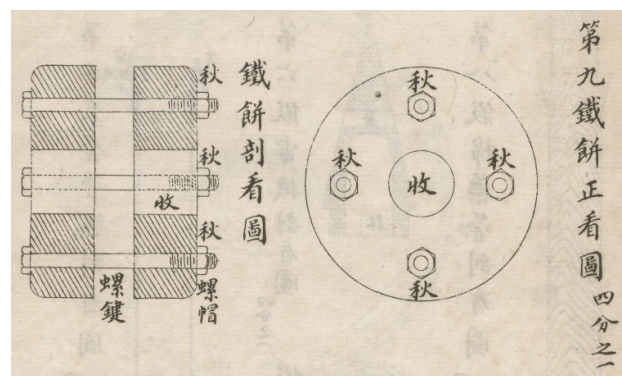 第九鐵餅正看圖 四分之一
秋
秋
收
秋
秋
鐵餅剖看圖
秋
秋
收
秋
螺鍵
螺帽